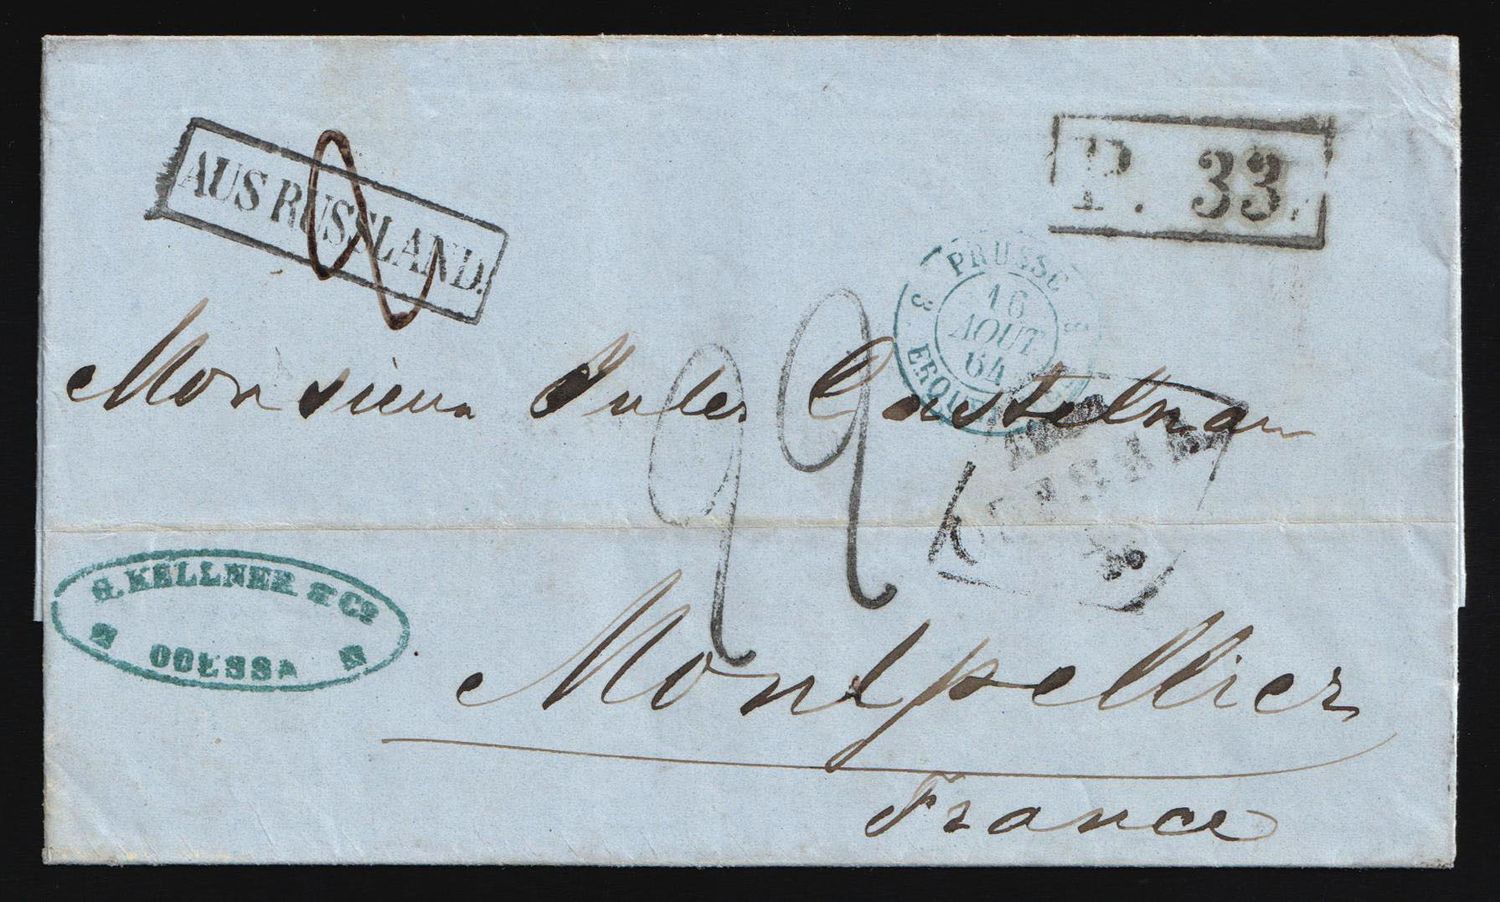 AUS RUSSLAND.
P. 33.
PRUSSE
3 3
16
AOUT
64
ERQUE
Monsieur Jules Castelnau
22
G. KELLNER & Co
ODESSA
Montpellier
France